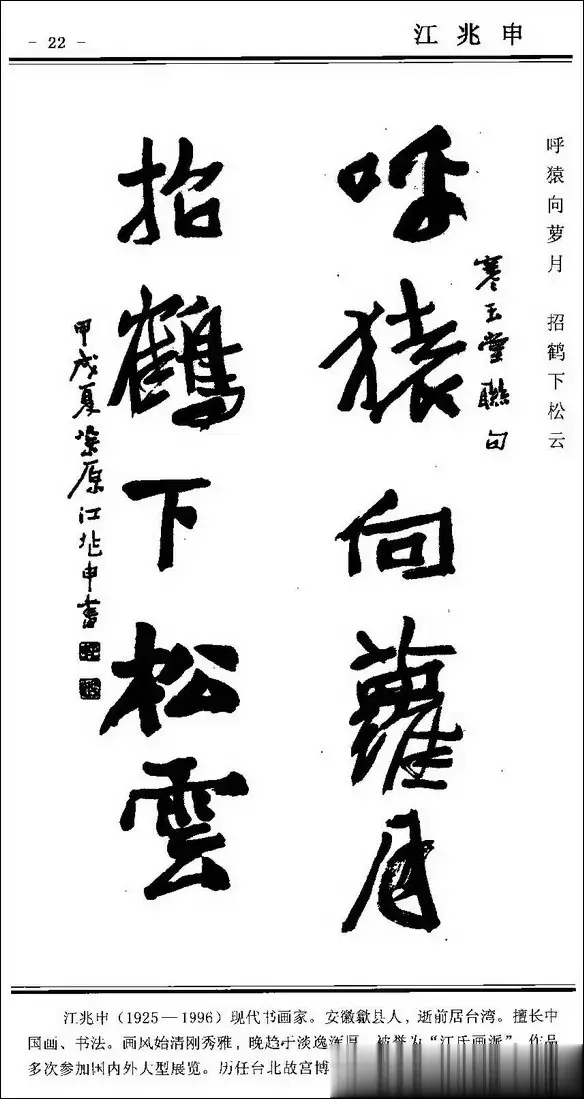 - 22 -
江兆申
呼猿向萝月 招鹤下松云
寒玉堂聯句
呼猿向蘿月
招鶴下松雲
甲戌夏 原江兆申書
江兆申（1925—1996）现代书画家。安徽歙县人，逝前居台湾。擅长中
国画、书法。画风始清刚秀雅，晚趋于淡逸浑厚，被誉为“江氏画派”。作品
多次参加国内外大型展览。历任台北故宫博